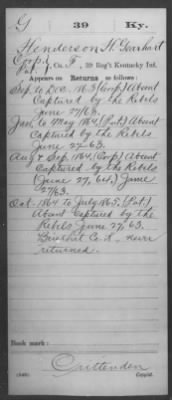 G 39 Ky.
Henderson H Gearhart
Corpl
Pvt, Co. F, 39 Reg't Kentucky Inf.
Appears on Returns as follows:
Sep. to Dec. 1863 (Corp) Absent
Captured by the Rebels
June 27/63.
Jan. to May 1864. (Pvt.) Absent
Captured by the Rebels
June 27-63.
Aug & Sep. 1864 (Corp) Absent
Captured by the Rebels
(June 27, 64.) June
27/63.
Oct. 1864 to July 1865. (Pvt.)
Absent Captured by the
Rebels June 27, 63.
Co. never
returned.
Book mark:
Crittenden
Copyist.